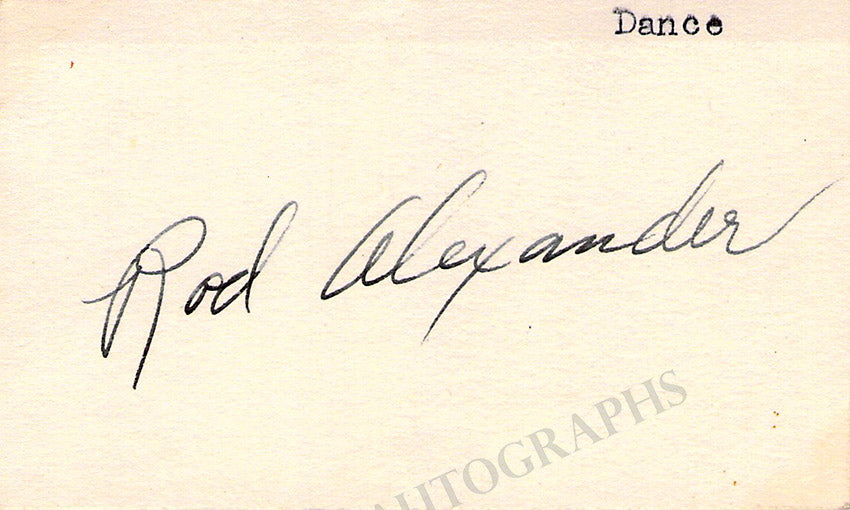 Dance
Rod Alexander
AUTOGRAPHS